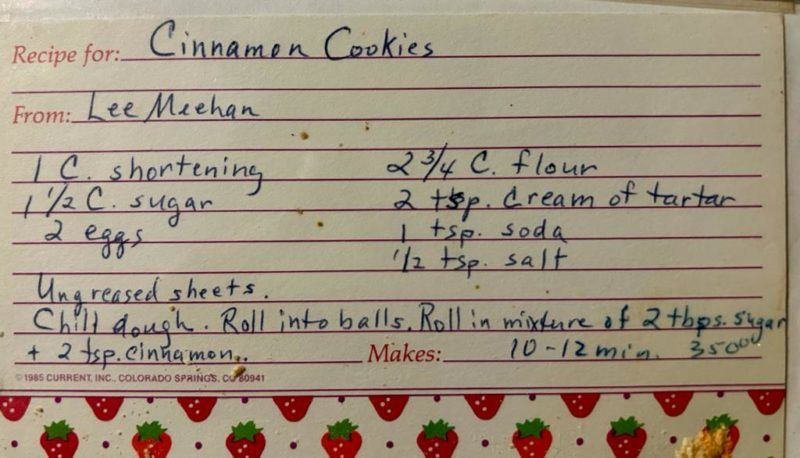 Recipe for: Cinnamon Cookies
From: Lee Meehan
1 C. shortening 2 3/4 C. flour
1 1/2 C. sugar 2 tsp. Cream of tartar
2 eggs 1 tsp. soda
1/2 tsp. salt
Ungreased sheets.
Chill dough. Roll into balls. Roll in mixture of 2 tbps. sugar
+ 2 tsp. cinnamon. Makes: 10-12 min. 350
© 1985 CURRENT, INC., COLORADO SPRINGS, CO 80941